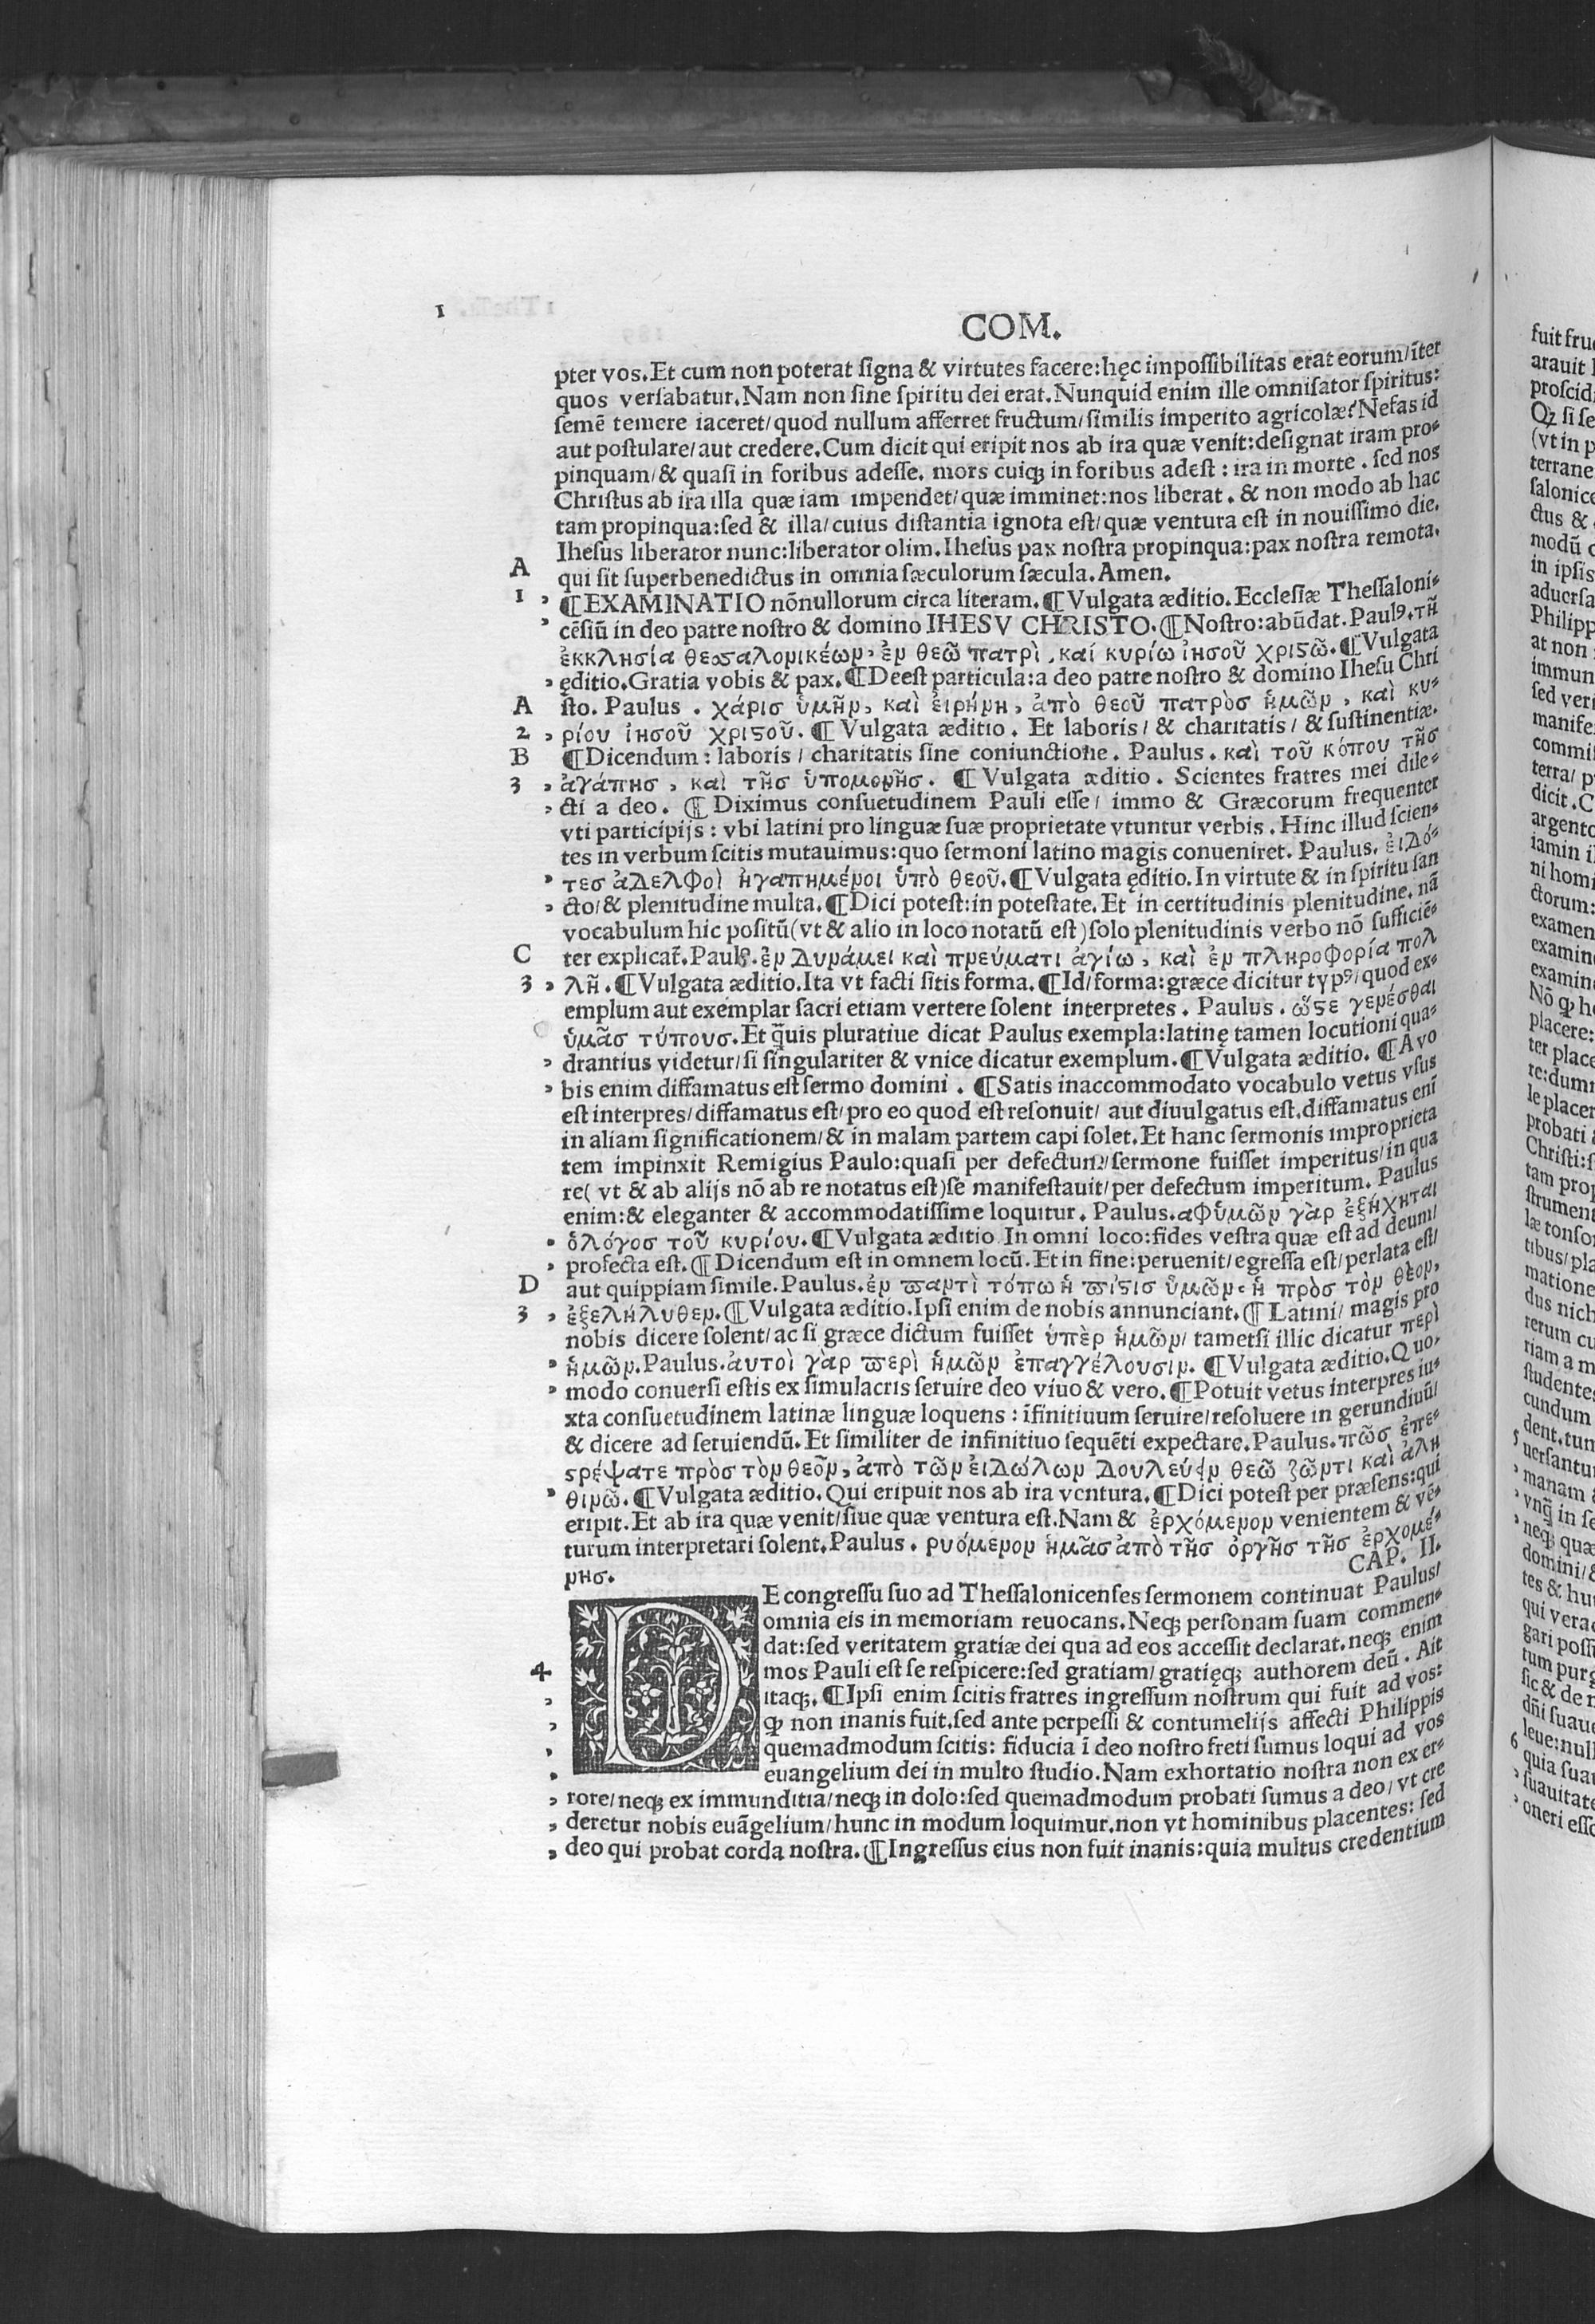 1
COM.
pter vos. Et cum non poterat signa & virtutes facere: hęc impossibilitas erat eorum/ īter
quos versabatur. Nam non sine spiritu dei erat. Nunquid enim ille omnisator spiritus:
semē temere iaceret/ quod nullum afferret fructum/ similis imperito agricolæ? Nefas id
aut postulare/ aut credere. Cum dicit qui eripit nos ab ira quæ venit: designat iram pro-
pinquam/ & quasi in foribus adesse. mors cuiqȝ in foribus adest: ira in morte. sed nos
Christus ab ira illa quæ iam impendet/ quæ imminet: nos liberat. & non modo ab hac
tam propinqua: sed & illa/ cuius distantia ignota est/ quæ ventura est in nouissimo die.
Ihesus liberator nunc: liberator olim. Ihesus pax nostra propinqua: pax nostra remota.
A qui sit superbenedictus in omnia sæculorum sæcula. Amen.
1 , ¶ EXAMINATIO nōnullorum circa literam. ¶ Vulgata æditio. Ecclesiæ Thessaloni-
, cēsiū in deo patre nostro & domino IHESV CHRISTO. ¶ Nostro: abūdat. Paulꝰ. τῆ
ἐκκλησία θεσσαλονικέων, ἐν θεῶ πατρὶ, καί κυρίω ἰησοῦ χριςῶ. ¶ Vulgata
, ęditio. Gratia vobis & pax. ¶ Deest particula: a deo patre nostro & domino Ihesu Chri
A sto. Paulus. χάρισ ὑμῆν, καὶ ἐιρήνη, ἀπὸ θεοῦ πατρὸσ ἡμῶν, καὶ κυ-
2 , ρίου ἰησοῦ χριςοῦ. ¶ Vulgata æditio. Et laboris/ & charitatis/ & sustinentiæ.
B ¶ Dicendum: laboris/ charitatis sine coniunctione. Paulus. καὶ τοῦ κόπου τῆσ
3 , ἀγάπησ, καὶ τῆσ ὑπομονῆσ. ¶ Vulgata æditio. Scientes fratres mei dile-
, cti a deo. ¶ Diximus consuetudinem Pauli esse/ immo & Græcorum frequenter
vti participijs: vbi latini pro linguæ suæ proprietate vtuntur verbis. Hinc illud scien-
tes in verbum scitis mutauimus: quo sermoni latino magis conueniret. Paulus. ἐιδό-
, τεσ ἀδελφοὶ ἠγαπημένοι ὑπὸ θεοῦ. ¶ Vulgata ęditio. In virtute & in spiritu san
, cto/ & plenitudine multa. ¶ Dici potest: in potestate. Et in certitudinis plenitudine. nā
vocabulum hic positū (vt & alio in loco notatū est) solo plenitudinis verbo nō sufficiē-
C ter explicat᷑. Paulꝰ. ἐν δυνάμει καὶ πνεύματι ἁγίω, καὶ ἐν πληροφορία πολ
3 , λῆ. ¶ Vulgata æditio. Ita vt facti sitis forma. ¶ Id/ forma: græce dicitur typꝰ/ quod ex-
emplum aut exemplar sacri etiam vertere solent interpretes. Paulus. ὥςε γενέσθαι
ὑμᾶσ τύπουσ. Et q̄uis pluratiue dicat Paulus exempla: latinę tamen locutioni qua-
, drantius videtur/ si singulariter & vnice dicatur exemplum. ¶ Vulgata æditio. ¶ A vo
, bis enim diffamatus est sermo domini. ¶ Satis inaccommodato vocabulo vetus vsus
est interpres/ diffamatus est/ pro eo quod est resonuit/ aut diuulgatus est. diffamatus enī
in aliam significationem/ & in malam partem capi solet. Et hanc sermonis improprieta
tem impinxit Remigius Paulo: quasi per defectum/ sermone fuisset imperitus/ in qua
re (vt & ab alijs nō ab re notatus est) se manifestauit/ per defectum imperitum. Paulus
enim: & eleganter & accommodatissime loquitur. Paulus. αφὑμῶν γὰρ ἐξήχηται
, ὁλόγοσ τοῦ κυρίου. ¶ Vulgata æditio In omni loco: fides vestra quæ est ad deum/
, profecta est. ¶ Dicendum est in omnem locū. Et in fine: peruenit/ egressa est/ perlata est/
D aut quippiam simile. Paulus. ἐν ϖαντὶ τόπω ἡ ϖίςισ ὑμῶν. ἡ πρὸσ τὸν θεον,
3 , ἐξελήλυθεν. ¶ Vulgata æditio. Ipsi enim de nobis annunciant. ¶ Latini/ magis pro
nobis dicere solent/ ac si græce dictum fuisset ὑπὲρ ἡμῶν/ tametsi illic dicatur περὶ
, ἡμῶν. Paulus. ἀυτοὶ γὰρ ϖερὶ ἡμῶν ἐπαγγέλουσιν. ¶ Vulgata æditio. Quo-
, modo conuersi estis ex simulacris seruire deo viuo & vero. ¶ Potuit vetus interpres iu-
xta consuetudinem latinæ linguæ loquens: īfinitiuum seruire/ resoluere in gerundiuū/
& dicere ad seruiendū. Et similiter de infinitiuo sequēti expectare. Paulus. πῶσ ἐπε-
ςρέψατε πρὸσ τὸν θεὸν, ἀπὸ τῶν ἐιδώλων δουλεύειν θεῶ ζῶντι καὶ ἀλη
, θινῶ. ¶ Vulgata æditio. Qui eripuit nos ab ira ventura. ¶ Dici potest per præsens: qui
eripit. Et ab ira quæ venit/ siue quæ ventura est. Nam & ἐρχόμενον venientem & vē-
turum interpretari solent. Paulus. ρυόμενον ἡμᾶσ ἀπὸ τῆσ ὀργῆσ τῆσ ἐρχομέ-
νησ.
CAP. II.
DE congressu suo ad Thessalonicenses sermonem continuat Paulus/
omnia eis in memoriam reuocans. Neqȝ personam suam commen-
dat: sed veritatem gratiæ dei qua ad eos accessit declarat. neqȝ enim
4 mos Pauli est se respicere: sed gratiam/ gratięqȝ authorem deū. Ait
, itaqȝ. ¶ Ipsi enim scitis fratres ingressum nostrum qui fuit ad vos:
, qꝫ non inanis fuit. sed ante perpessi & contumelijs affecti Philippis
, quemadmodum scitis: fiducia ī deo nostro freti sumus loqui ad vos
, euangelium dei in multo studio. Nam exhortatio nostra non ex er-
, rore/ neqȝ ex immunditia/ neqȝ in dolo: sed quemadmodum probati sumus a deo/ vt cre
, deretur nobis euāgelium/ hunc in modum loquimur. non vt hominibus placentes: sed
, deo qui probat corda nostra. ¶ Ingressus eius non fuit inanis: quia multus credentium